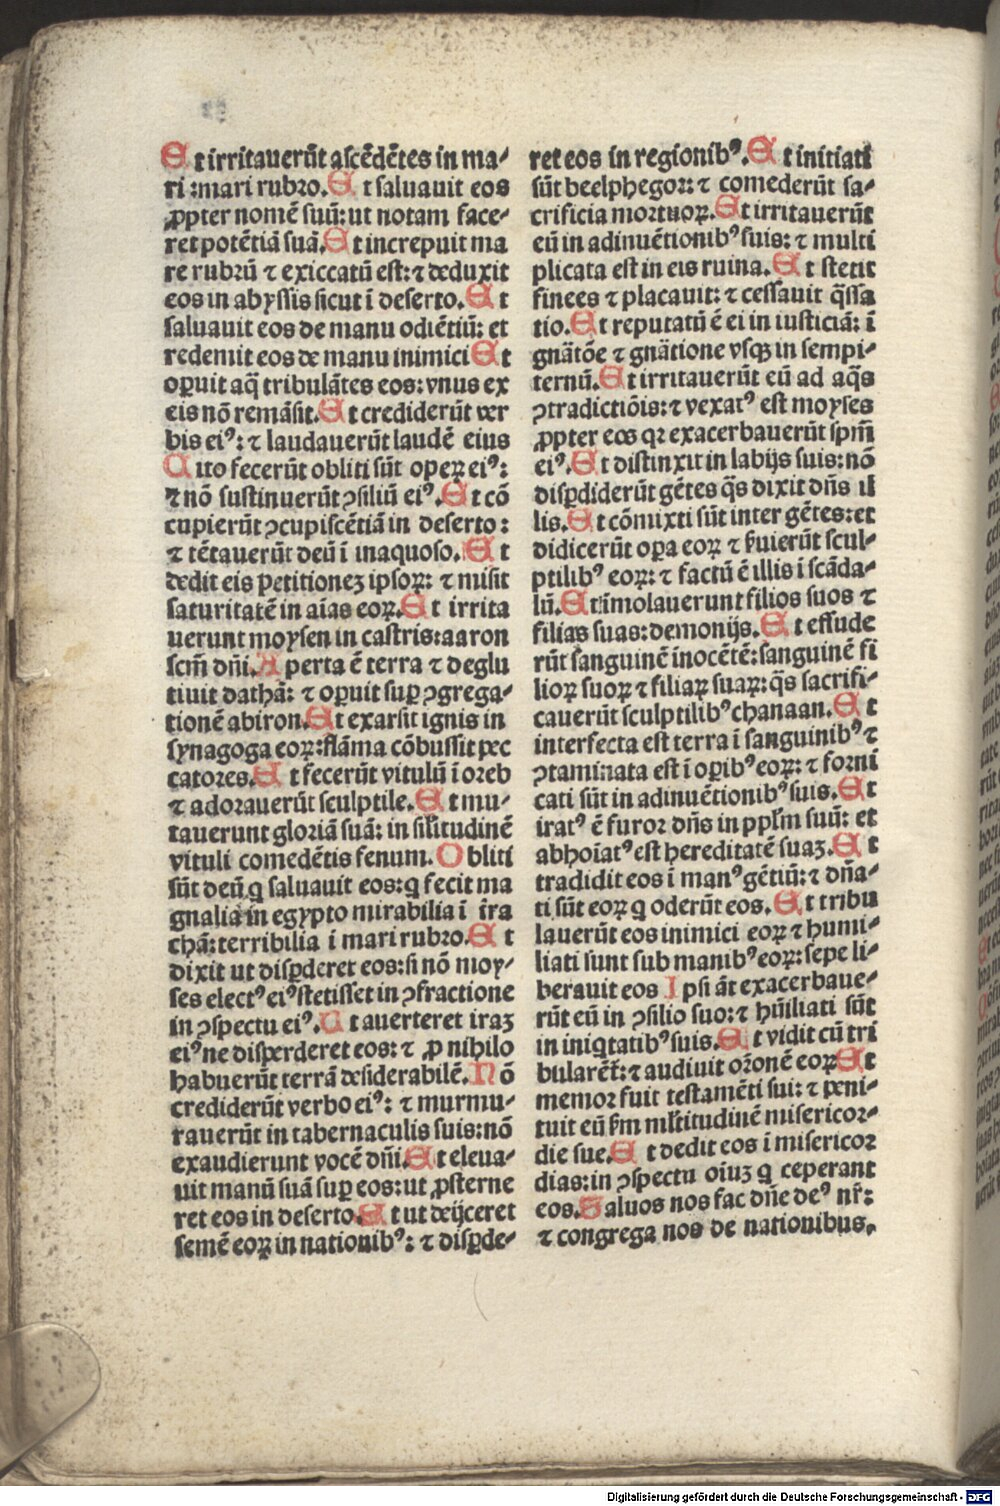 Et irritauerūt ascēdētes in ma⸗
ri :mari rubro. Et saluauit eos
ꝓpter nomē suū: ut notam face⸗
ret potētiā suā. Et increpuit ma
re rubrū ⁊ exiccatū est: ⁊ deduxit
eos in abyssis sicut ī deserto. Et
saluauit eos de manu odiētiū: et
redemit eos de manu inimici Et
oꝑuit aq̄ tribulātes eos: vnus ex
eis nō remāsit. Et crediderūt ver
bis eiꝰ: ⁊ laudauerūt laudē eius
Cito fecerūt obliti sūt oꝑeꝝ eiꝰ:
⁊ nō sustinuerūt ꝯsiliū eiꝰ. Et cō
cupierūt ꝯcupiscētiā in deserto:
⁊ tētauerūt deū ī inaquoso. Et
dedit eis petitionez ipsoꝝ: ⁊ misit
saturitatē in aīas eoꝝ. Et irrita
uerunt moysen in castris: aaron
scm̄ dn̄i. Aperta ē terra ⁊ deglu
tiuit dathā: ⁊ oꝑuit suꝑ ꝯgrega⸗
tionē abiron. Et exarsit ignis in
synagoga eoꝝ: flāma cōbussit pec
catores. Et fecerūt vitulū ī oreb
⁊ adorauerūt sculptile. Et mu⸗
tauerunt gloriā suā: in sil̄itudinē
vituli comedētis fenum. Obliti
sūt deū q saluauit eos: q fecit ma
gnalia in egypto mirabilia ī t̄ra
chā: terribilia ī mari rubro. Et
dixit ut disꝑderet eos: si nō moy⸗
ses electꝰ eiꝰ stetisset in ꝯfractione
in ꝯspectu eiꝰ. Ut auerteret iraꝫ
eiꝰ ne disperderet eos: ⁊ ꝓ nihilo
habuerūt terrā desiderabilē. Nō
crediderūt verbo eiꝰ: ⁊ murmu⸗
rauerūt in tabernaculis suis: nō
exaudierunt vocē dn̄i. Et eleua⸗
uit manū suā suꝑ eos: ut ꝓsterne
ret eos in deserto. Et ut deijceret
semē eoꝝ in nationibꝰ: ⁊ disꝑde⸗
ret eos in regionibꝰ. Et initiati
sūt beelphegor: ⁊ comederūt sa⸗
crificia mortuoꝝ. Et irritauerūt
eū in adinuētionibꝰ suis: ⁊ multi
plicata est in eis ruina. Et stetit
finees ⁊ placauit: ⁊ cessauit q̄ssa
tio. Et reputatū ē ei in iusticiā: ī
gn̄atōe ⁊ gn̄atione vsqꝫ in sempi⸗
ternū. Et irritauerūt eū ad aq̄s
ꝯtradictiōis: ⁊ vexatꝰ est moyses
ꝓpter eos qꝛ exacerbauerūt spm̄
eiꝰ. Et distinxit in labijs suis: nō
disꝑdiderūt gētes q̄s dixit dn̄s il
lis. Et cōmixti sūt inter gētes: et
didicerūt oꝑa eoꝝ ⁊ s̄uierūt scul⸗
ptilibꝰ eoꝝ: ⁊ factū ē illis ī scāda⸗
lū. Et īmolauerunt filios suos ⁊
filias suas: demonijs. Et effude
rūt sanguinē īnocētē: sanguinē fi
lioꝝ suoꝝ ⁊ filiaꝝ suaꝝ: q̄s sacrifi⸗
cauerūt sculptilibꝰ chanaan. Et
interfecta est terra ī sanguinibꝰ ⁊
ꝯtaminata est ī oꝑibꝰ eoꝝ: ⁊ forni
cati sūt in adinuētionibꝰ suis. Et
iratꝰ ē furor dn̄s in ppl̄m suū: et
abhoīatꝰ est hereditatē suaꝫ. Et
tradidit eos ī manꝰ gētiū: ⁊ dn̄a⸗
ti sūt eoꝝ q oderūt eos. Et tribu
lauerūt eos inimici eoꝝ ⁊ humi⸗
liati sunt sub manibꝰ eoꝝ: sepe li⸗
berauit eos Ipsi āt exacerbaue⸗
rūt eū in ꝯsilio suo: ⁊ hūiliati sūt
in iniqtatibꝰ suis. Et vidit cū tri
bularēt̄: ⁊ audiuit or̄onē eoꝝ Et
memor fuit testamēti sui: ⁊ peni⸗
tuit eū s̄m ml̄titudinē misericor⸗
die sue. Et dedit eos ī misericor
dias: in ꝯspectu oīuꝫ q ceperant
eos. Saluos nos fac dn̄e deꝰ nr̄:
⁊ congrega nos de nationibus.
Digitalisierung gefördert durch die Deutsche Forschungsgemeinschaft - DFG